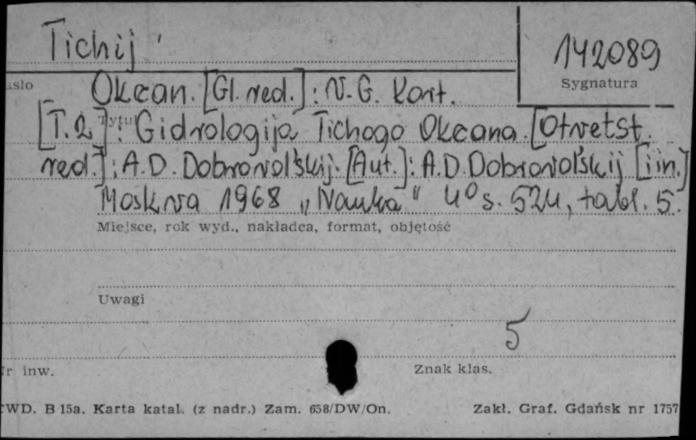 Tichij
142089
Sygnatura
Okean. [Gl. red.]: V. G. Kort.
Tytuł
[T. 2]: Gidrologija Tichogo Okeana. [Otvetst.
red.]: A. D. Dobrovol'skij. [Aut.]: A. D. Dobrovol'skij [i in.]
Moskva 1968 „Nauka" 4° s. 524, tabl. 5.
Miejsce, rok wyd., nakładca, format, objętość
Uwagi
5
Nr inw.
Znak klas.
CWD. B 15a. Karta katal. (z nadr.) Zam. 658/DW/On.
Zakł. Graf. Gdańsk nr 1757